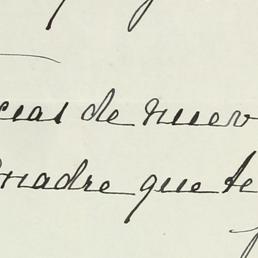 cias de nuev
madre que te